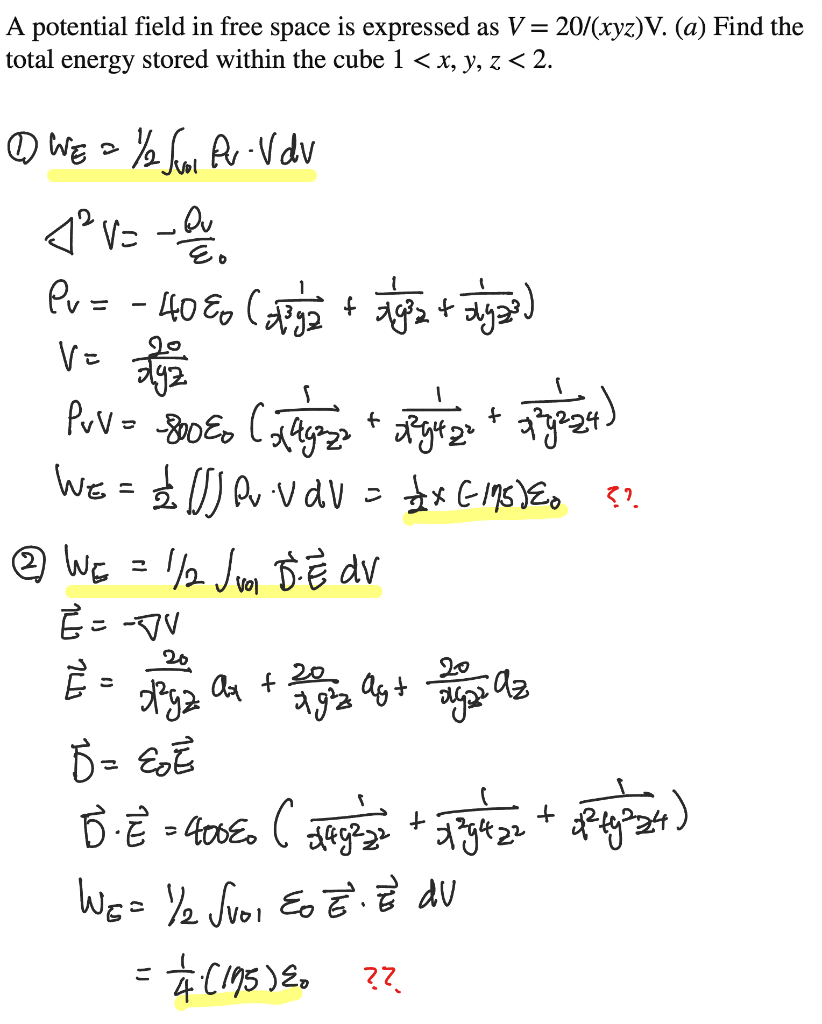 A potential field in free space is expressed as V = 20/(xyz)V. (a) Find the
total energy stored within the cube 1 < x, y, z < 2.
① WE = 1/2 ∫vol ρv · V dv
∇² V = - ρv/ε0
ρv = - 40 ε0 ( 1/x³yz + 1/xy³z + 1/xyz³ )
V = 20/xyz
ρvV = -800 ε0 ( 1/x⁴y²z² + 1/x²y⁴z² + 1/x²y²z⁴ )
WE = 1/2 ∭ ρv · V dV = 1/2 × (-175)ε0 ??
② WE = 1/2 ∫vol D⃗·E⃗ dV
E⃗ = -∇V
E⃗ = 20/x²yz ax + 20/xy²z ay + 20/xyz² az
D⃗ = ε0E⃗
D⃗·E⃗ = 400ε0 ( 1/x⁴y²z² + 1/x²y⁴z² + 1/x²y²z⁴ )
WE = 1/2 ∫vol ε0 E⃗·E⃗ dV
= 1/4·(175)ε0 ??